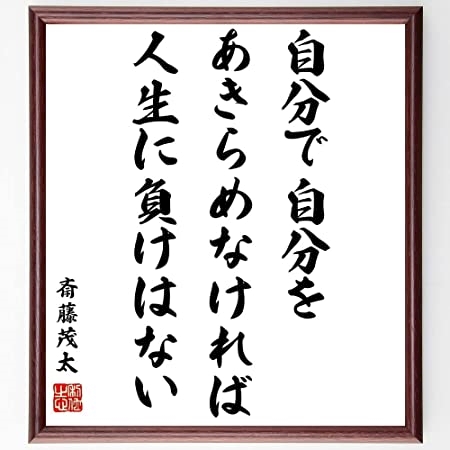 自分で自分を
あきらめなければ
人生に負けはない
斎藤茂太